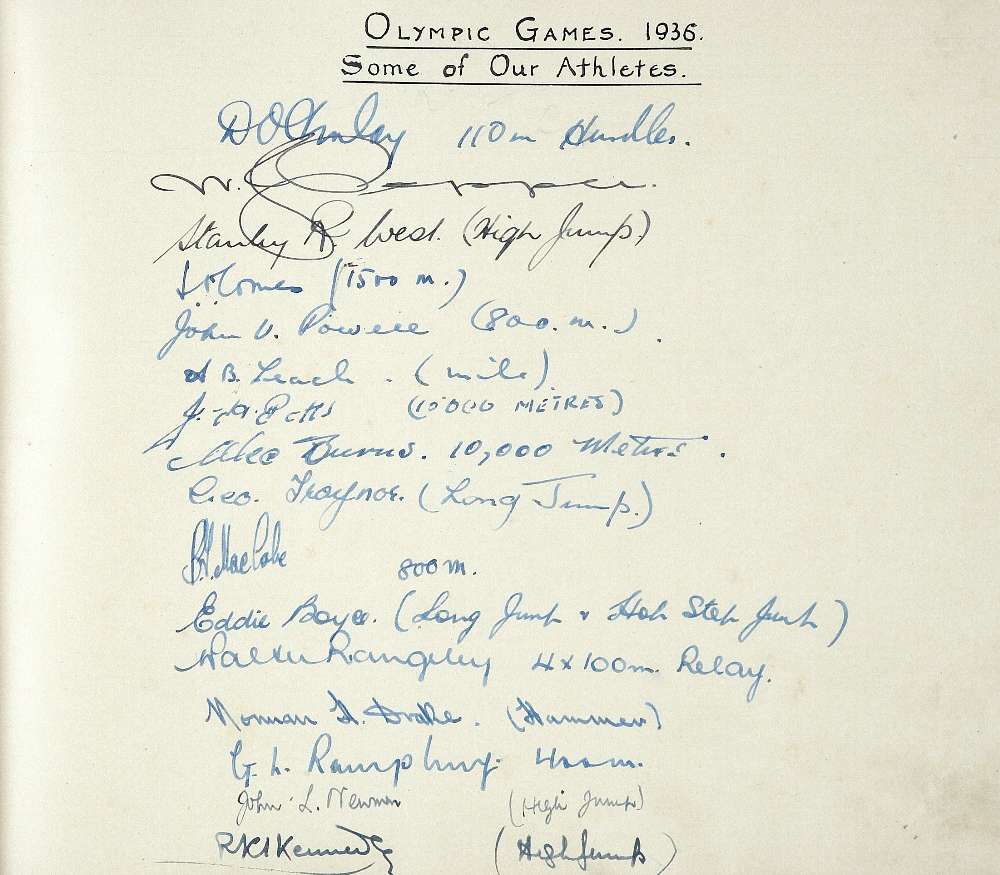 OLYMPIC GAMES. 1936.
Some of Our Athletes.
D O Finlay 110m Hurdles.
W.
Stanley R. West. (High Jump)
(1500 m.)
John V. Powell (800. m.)
B. Leach. (mile)
J. H. Potts (10000 METRES)
Alec Burns. 10,000 Metres.
Geo. Traynor. (Long Jump.)
B. MacCabe 800 m.
Eddie Boyce. (Long Jump & Hop Step Jump)
Walter Rangeley 4x100m. Relay.
Norman H. Drake. (Hammer)
G. L. Rampling. 400m.
John L. Newman (High Jump)
R K I Kennedy (High Jump)